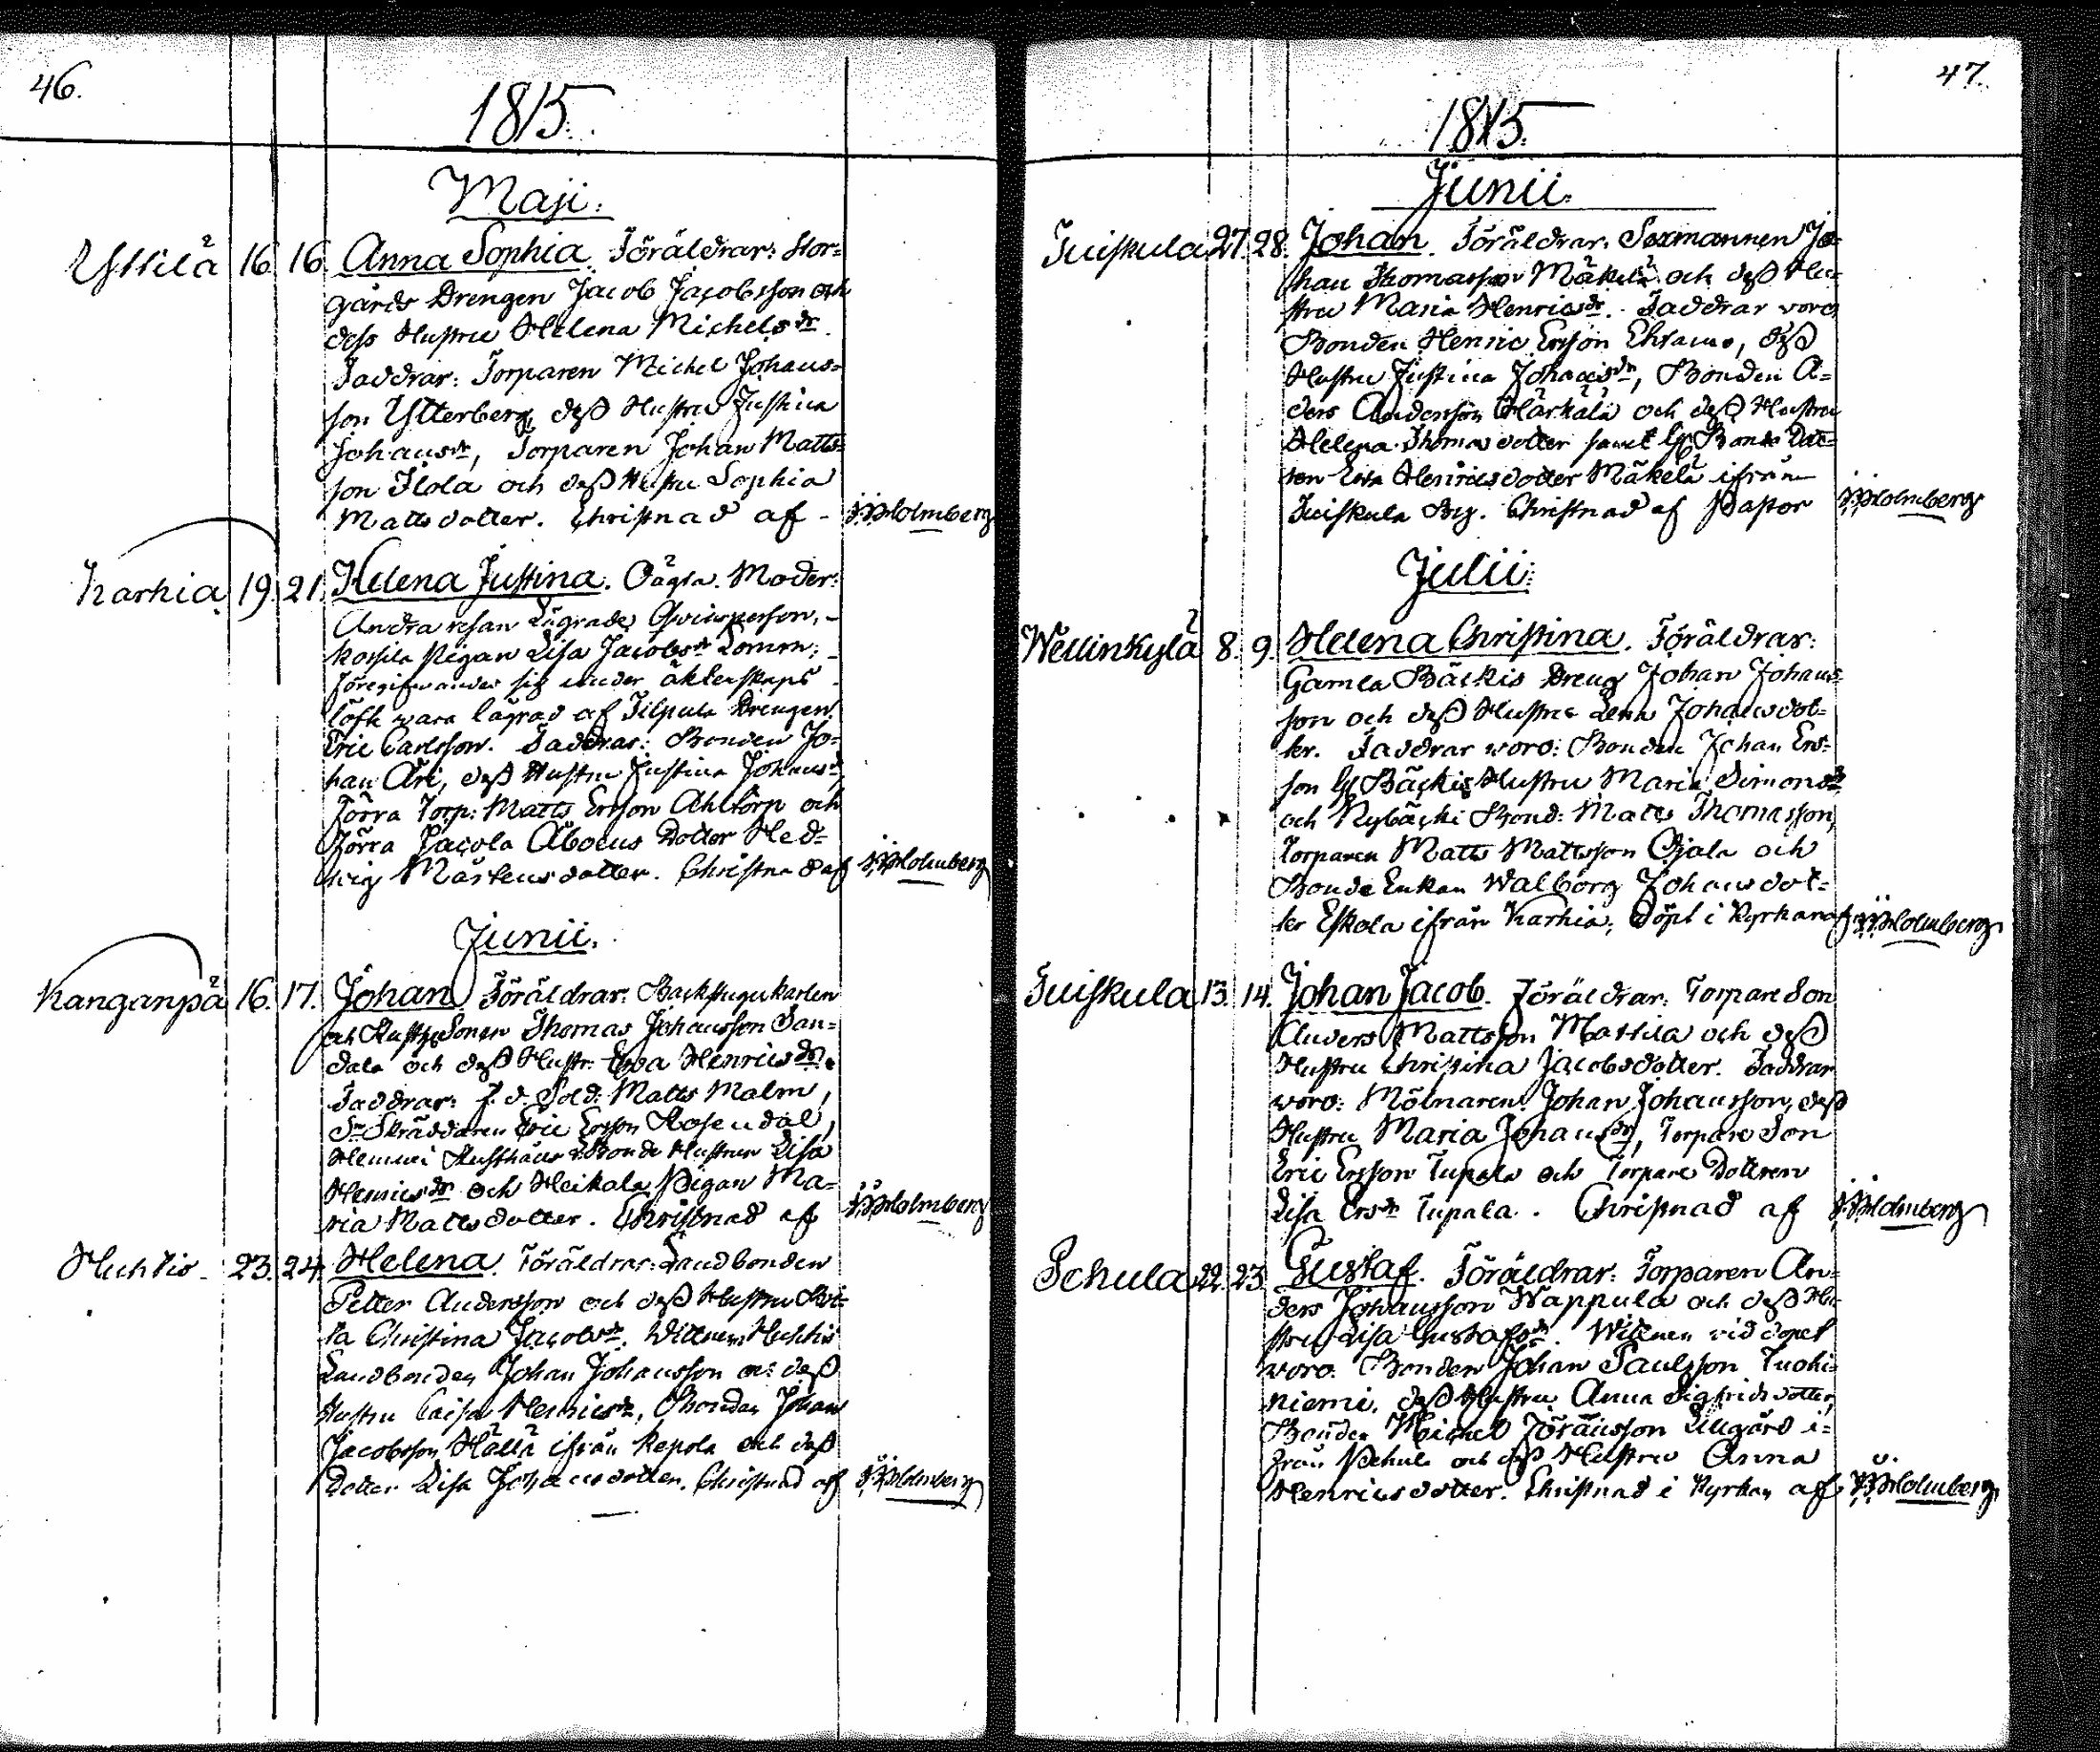 46.
1815.
Maji.
Yttilä 16 16 Anna Sophia. Föräldrar: Stor-
gårds Drengen Jacob Jacobsson och
dess Hustru Helena Michelsdr.
Faddrar: Torparen Michel Johans-
son Ytterberg, deß Hustru Justina
Johansdr, Torparen Johan Matts-
son Ilola och deß Hustru Sophia
Mattsdotter. Christnad af - Holmberg
Karhia 19. 21. Helena Justina. Oägta. Moder:
Andra resan Lägrade Qwinsperson,
Pigan Lisa Jacobsdr
föregifwandes sig under äktenskaps
löfte wara lägrad af Filpula Drengen
Eric Carlsson. Faddrar: Bonden Jo-
han Äri, deß Hustru Justina Johansdr,
Förra Torp: Matts Ersson Ahltorp och
Förra Jacola Åboens Dotter Hed-
wig Mårtensdotter. Christnad af Holmberg
Junii.
Kanganpä 16. 17. Johan. Föräldrar: Backstugukarlen
och Sonen Thomas Johansson San-
dala och deß Hustr. Ewa Henricsdr.
Faddrar: f.d. Sold: Matts Malm,
Skräddaren Eric Ersson Rosendal,
Bonde Hustrun Lisa
Henricsdr och Heikola Pigan Ma-
ria Mattsdotter. Christnad af Holmberg
Huhtio 23. 24. Helena. Föräldrar: Landbonden
Petter Andersson och deß Hustru Bri-
ta Christina Jacobsdr. Wittnen Huhtio
Landbonden Johan Johansson o: deß
Hustru Caisa Henricsdr, Bonden Johan
Jacobsson Hälla ifrån Kepola och deß
Dotter Lisa Johansdotter. Christnad af Holmberg
47.
1815.
Junii.
Tuiskula 27. 28. Johan. Föräldrar: Sexmannen Jo-
han Thomasson Mäkelä och deß Hu-
stru Maria Henricsdr. Faddrar voro
Bonden Henric Ersson Ehtamo, deß
Hustru Justina Johansdr, Bonden A-
ders Andersson Härkälä och deß Hustru
Helena Thomasdotter samt Bonde Dot-
ren Ewa Henricsdotter Mäkelä ifrån
Tuiskula By. Christnad af Pastor Holmberg
Julii.
Wellinkylä 8. 9. Helena Christina. Föräldrar:
Gamla Bäckis Dreng Johan Johans-
son och deß Hustru Lena Johansdot-
ter. Faddrar woro: Bonden Johan Ers-
son Gl Bäckis Hustru Maria Simonsdr
och Nybäcki Bond: Matts Thomasson,
Torparen Matts Mattsson Ojala och
Bonde Enkan Walborg Johansdot-
ter Eskola ifrån Karhia, Döpt i Kyrkan af Holmberg
Tuiskula 13. 14. Johan Jacob. Föräldrar: Torpare Son
Anders Mattsson Mattila och deß
Hustru Christina Jacobsdotter. Faddrar
woro: Mölnaren Johan Johansson, deß
Hustru Maria Johansdr, Torpare Son
Eric Ersson Tupala och Torpare Dottren
Lisa Ersdr Tupala. Christnad af Holmberg
Pehula 22. 23. Gustaf. Föräldrar: Torparen An-
ders Johansson Wappula och deß Hu-
stru Lisa Gustafsdr. Wittnen vid dopet
woro. Bonden Johan Paulsson Tuohi-
niemi, deß Hustru Anna Sigfridsdotter,
Bonden Michel Jöransson Lillgård i-
från Pehula och deß Hustru Anna
Henricsdotter. Christnad i Kyrkan af Holmberg